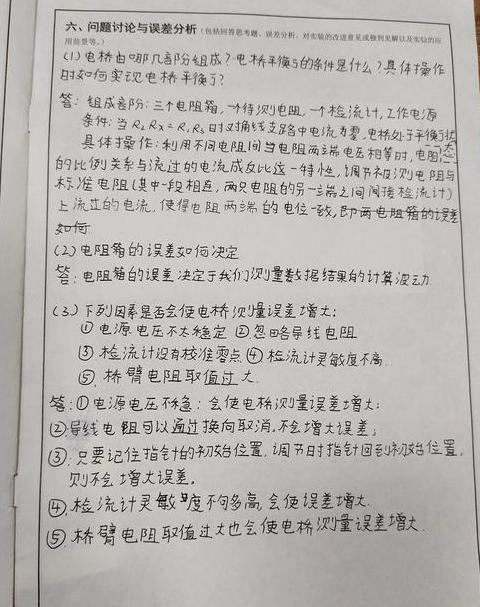 六、问题讨论与误差分析(包括回答思考题、误差分析、对实验的改进意见或独到见解以及实验的应
用前景等。)
(1)电桥由哪几部分组成?电桥平衡的条件是什么?具体操作
时如何实现电桥平衡?
答:组成部分:三个电阻箱,一个待测电阻,一个检流计,工作电源
条件:当R₂Rx=R₁Rs时对角线支路中电流为零,电桥处于平衡状
态
具体操作:利用不同电阻间当电阻两端电压相等时,电阻
的比例关系与流过的电流成反比这一特性,调节和测电阻与
标准电阻(其中一段相连,两只电阻的另一端之间间接检流计)
上流过的电流,使得电阻两端的电位一致,即两电阻箱的误差
如何
(2)电阻箱的误差如何决定
答:电阻箱的误差决定于我们测量数据结果的计算波动
(3)下列因素是否会使电桥测量误差增大:
①电源电压不太稳定 ②忽略导线电阻
③检流计没有校准零点 ④检流计灵敏度不高
⑤.桥臂电阻取值过大.
答:①电源电压不稳:会使电桥测量误差增大;
②导线电阻可以通过换向取消.不会增大误差;
③.只要记住指针的初始位置.调节时指针回到初始位置,
则不会增大误差。
④.检流计灵敏度不够高,会使误差增大.
⑤.桥臂电阻取值过大也会使电桥测量误差增大.